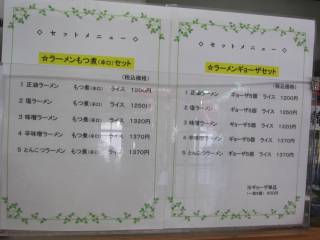 ◇ セットメニュー ◇
☆ラーメンもつ煮(辛口)セット
(税込価格)
1 正油ラーメン もつ煮(辛口) ライス 1200円
2 塩ラーメン もつ煮(辛口) ライス 1250円
3 味噌ラーメン もつ煮(辛口) ライス 1320円
4 辛味噌ラーメン もつ煮(辛口) ライス 1370円
5 とんこつラーメン もつ煮(辛口) ライス 1370円
◇ セットメニュー ◇
☆ラーメンギョーザセット
(税込価格)
1 正油ラーメン ギョーザ5個 ライス 1200円
2 塩ラーメン ギョーザ5個 ライス 1250円
3 味噌ラーメン ギョーザ5個 ライス 1320円
4 辛味噌ラーメン ギョーザ5個 ライス 1370円
5 とんこつラーメン ギョーザ5個 ライス 1370円
※ギョーザ単品